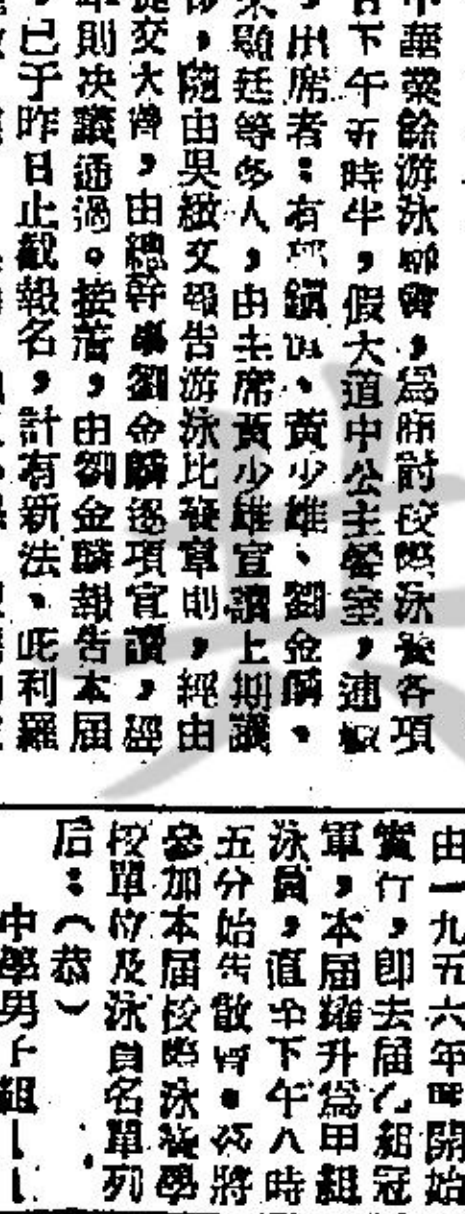 中華業餘游泳聯會，爲研討校際泳賽各項
日下午五時半，假大道中公主餐室，連叙
，出席者：有鎮、黃少雄、劉金麟、
顯廷等多人，由主席黃少雄宣讀上期議
，隨由吳緻文報告游泳比賽章則，經由
提交大會，由總幹事劉金麟逐項宣讀，經
則決議通過。接着，由劉金麟報告本屆
，已于昨日止截報名，計有新法、庇利羅
由一九五六年時開始
實行，即去屆乙組冠
軍，本屆耀升爲甲組
泳員，直至下午八時
五分始告散會。茲將
參加本屆校際泳賽學
校單位及泳員名單列
后：（恭）
中學男子組——